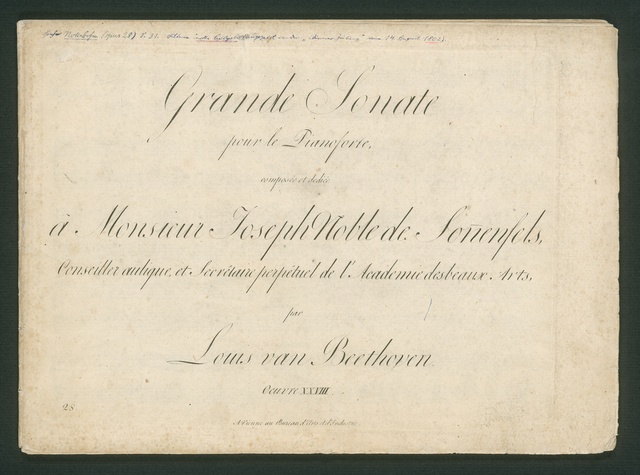 Grande Sonate
pour le Pianoforte,
composée et dediée
à Monsieur Joseph Noble de Soñenfels,
Conseiller aulique, et Secrétaire perpétuel de l'Academie des beaux Arts,
par
Louis van Beethoven.
Oeuvre XXVIII
28
A Vienne au Bureau d'Arts et d'Industrie